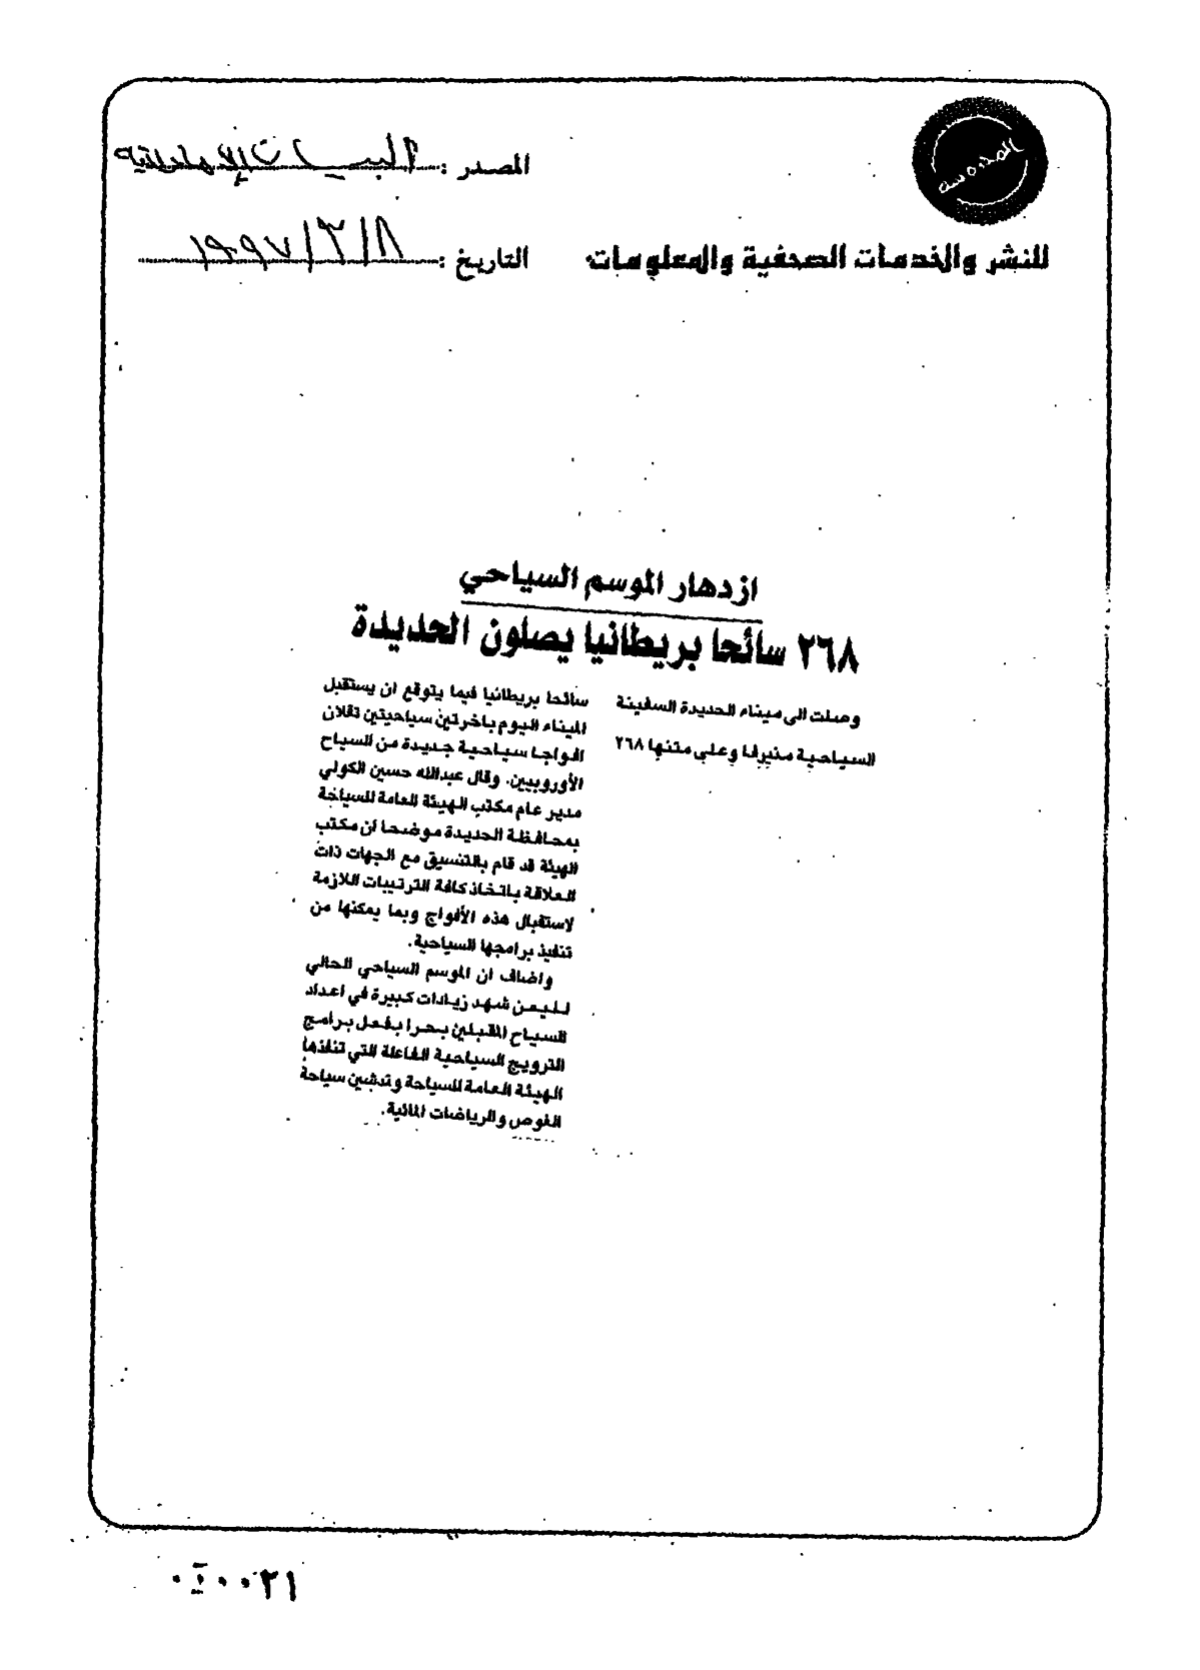 المدروسة
للنشر والخدمات الصحفية والمعلومات
المصدر : البيان الإماراتية
التاريخ : ١٩٩٧/٣/٨
ازدهار الموسم السياحي
٢٦٨ سائحا بريطانيا يصلون الحديدة
وصلت الى ميناء الحديدة السفينة
السياحية منيرفا وعلى متنها ٢٦٨
سائحا بريطانيا فيما يتوقع ان يستقبل
الميناء اليوم باخرتين سياحيتين تقلان
افواجا سياحية جديدة من السياح
الأوروبيين. وقال عبدالله حسين الكولي
مدير عام مكتب الهيئة العامة للسياحة
بمحافظة الحديدة موضحا ان مكتب
الهيئة قد قام بالتنسيق مع الجهات ذات
العلاقة باتخاذ كافة الترتيبات اللازمة
لاستقبال هذه الأفواج وبما يمكنها من
تنفيذ برامجها السياحية.
واضاف ان الموسم السياحي الحالي
لليمن شهد زيادات كبيرة في اعداد
السياح المقبلين بحرا بفعل برامج
الترويج السياحية الفاعلة التي تنفذها
الهيئة العامة للسياحة وتدشين سياحة
الغوص والرياضات المائية.